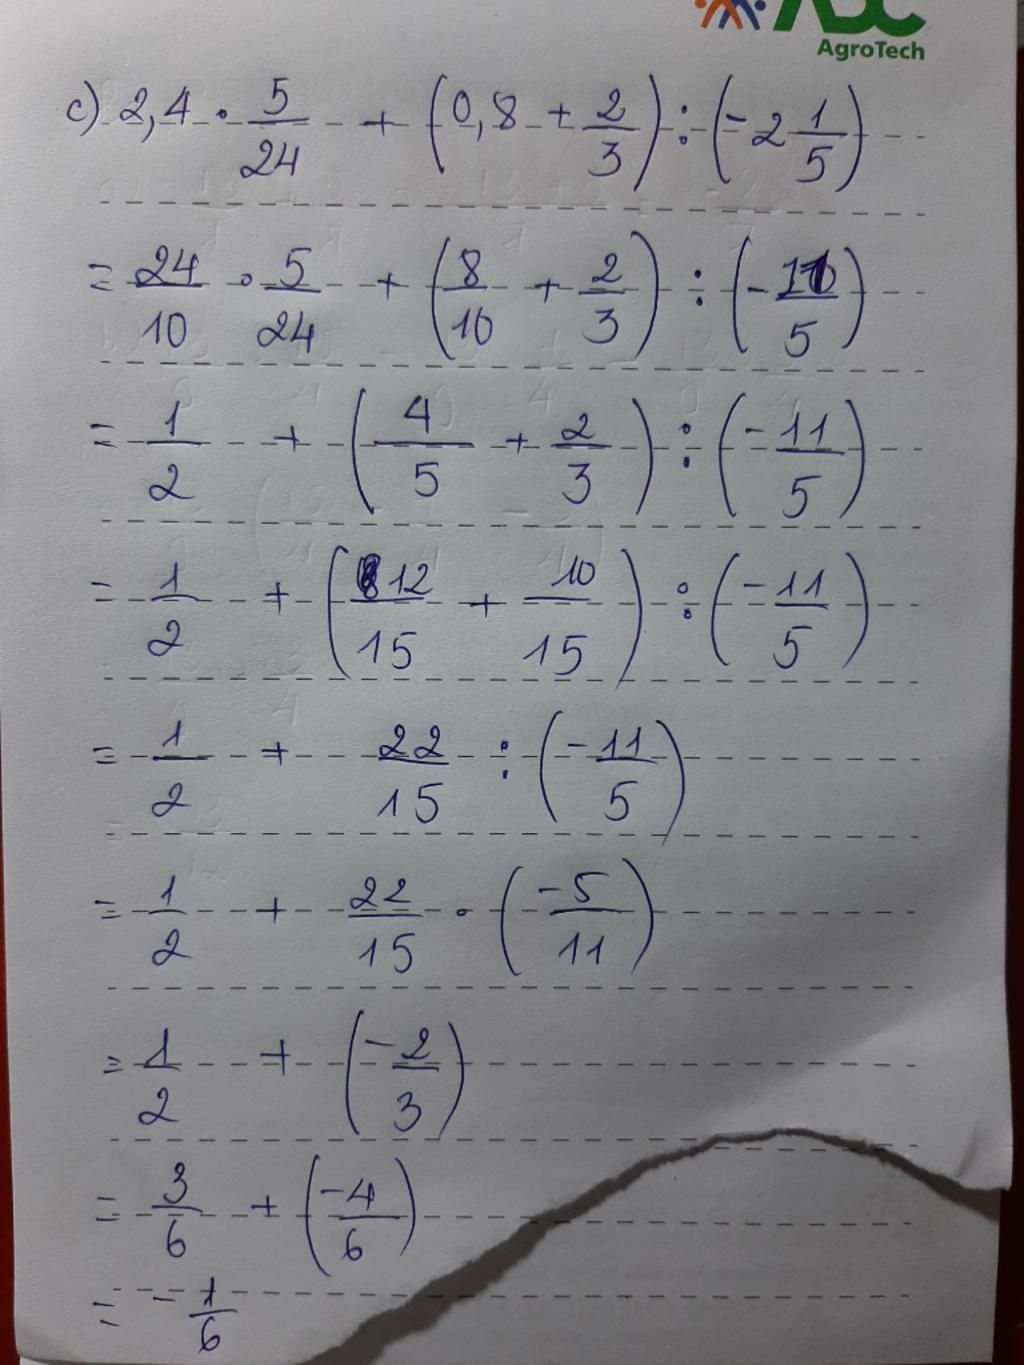 ABC
AgroTech
c) 2,4 · 5/24 + (0,8 + 2/3) : (-2 1/5)
= 24/10 · 5/24 + (8/10 + 2/3) : (-11/5)
= 1/2 + (4/5 + 2/3) : (-11/5)
= 1/2 + (12/15 + 10/15) : (-11/5)
= 1/2 + 22/15 : (-11/5)
= 1/2 + 22/15 · (-5/11)
= 1/2 + (-2/3)
= 3/6 + (-4/6)
= -1/6